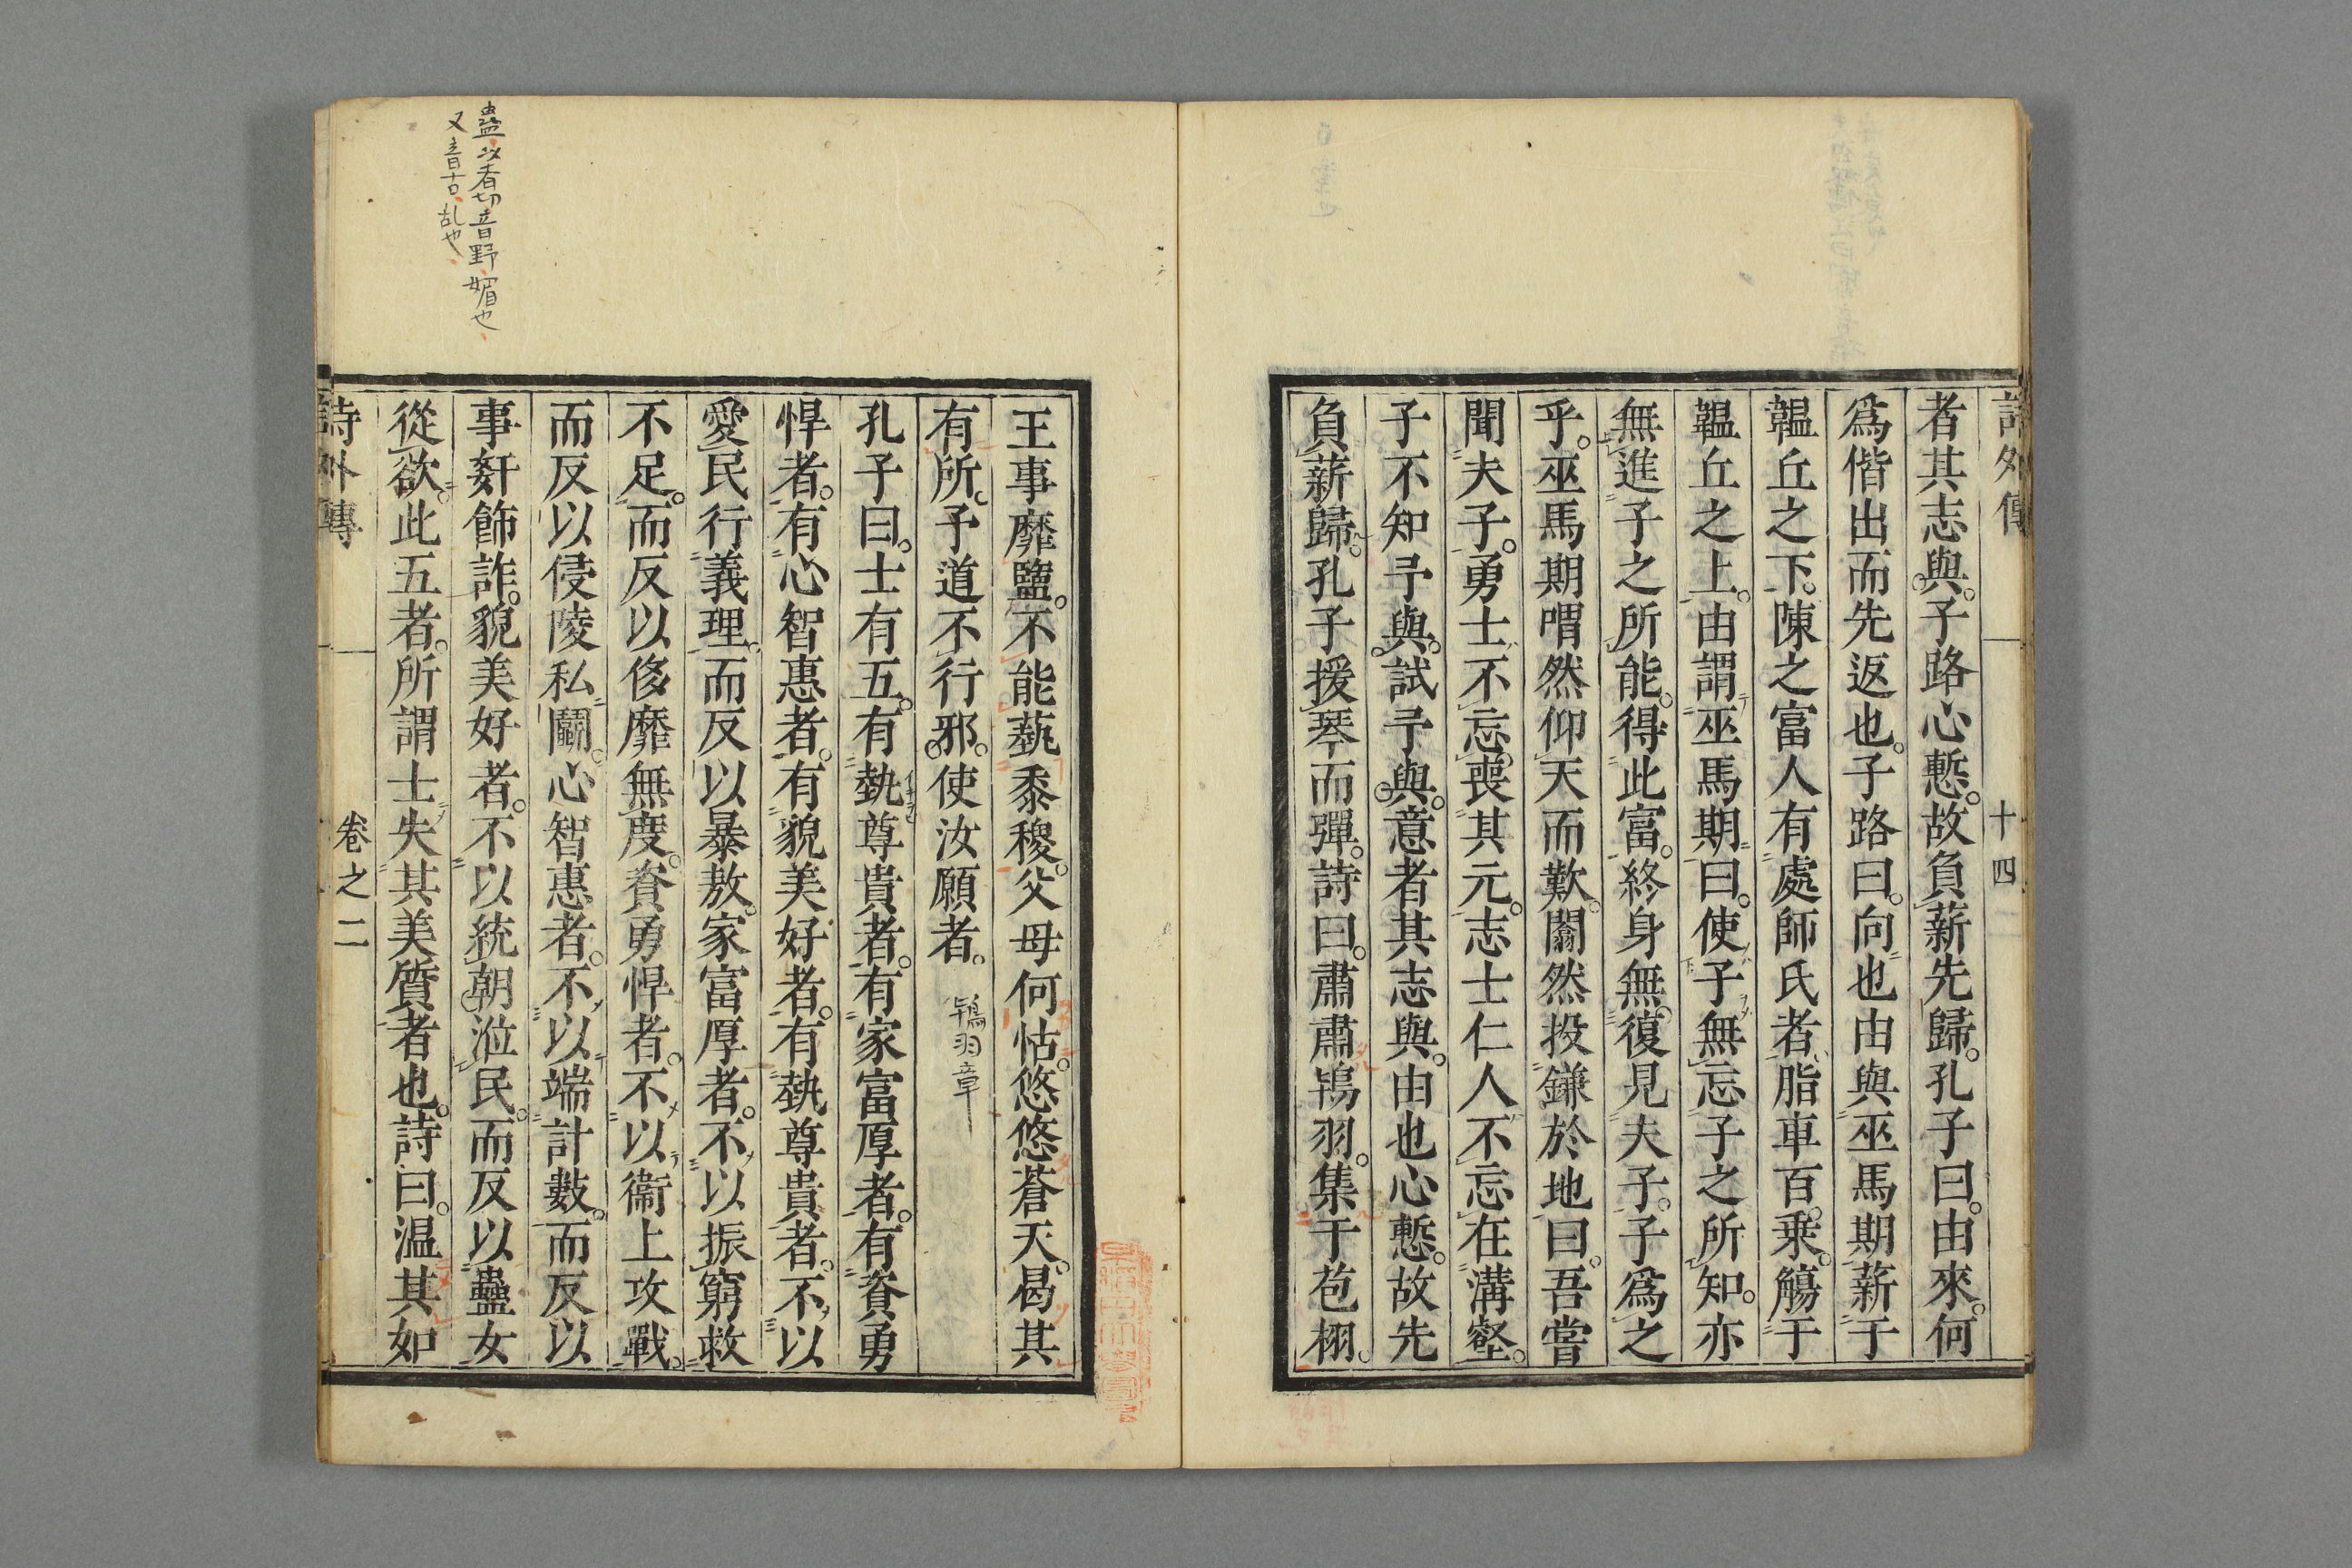 詩外傳
十四
者其志與。子路心慙。故負薪先歸。孔子曰。由來。何
爲偕出而先返也。子路曰。向也由與巫馬期薪于
韞丘之下。陳之富人有處師氏者。脂車百乗。觴于
韞丘之上。由謂巫馬期曰。使子無忘子之所知。亦
無進子之所能。得此富。終身無復見夫子。子爲之
乎。巫馬期喟然仰天而歎。闟然投鎌於地曰。吾嘗
聞夫子。勇士不忘喪其元。志士仁人不忘在溝壑。
子不知予與。試予與。意者其志與。由也心慙。故先
負薪歸。孔子援琴而彈。詩曰。肅肅鴇羽。集于苞栩。
王事靡盬。不能蓺黍稷。父母何怙。悠悠蒼天。曷其
有所。予道不行邪。使汝願者。 鴇羽章
孔子曰。士有五。有埶尊貴者。有家富厚者。有資勇
悍者。有心智惠者。有貌美好者。有埶尊貴者。不以
愛民行義理。而反以暴敖。家富厚者。不以振窮救
不足。而反以侈靡無度。資勇悍者。不以衞上攻戰。
而反以侵陵私鬭。心智惠者。不以端計數。而反以
事姧飾詐。貌美好者。不以統朝涖民。而反以蠱女
從欲。此五者。所謂士失其美質者也。詩曰。温其如
詩外傳
卷之二
蠱以者切音野媚也
又音古乱也